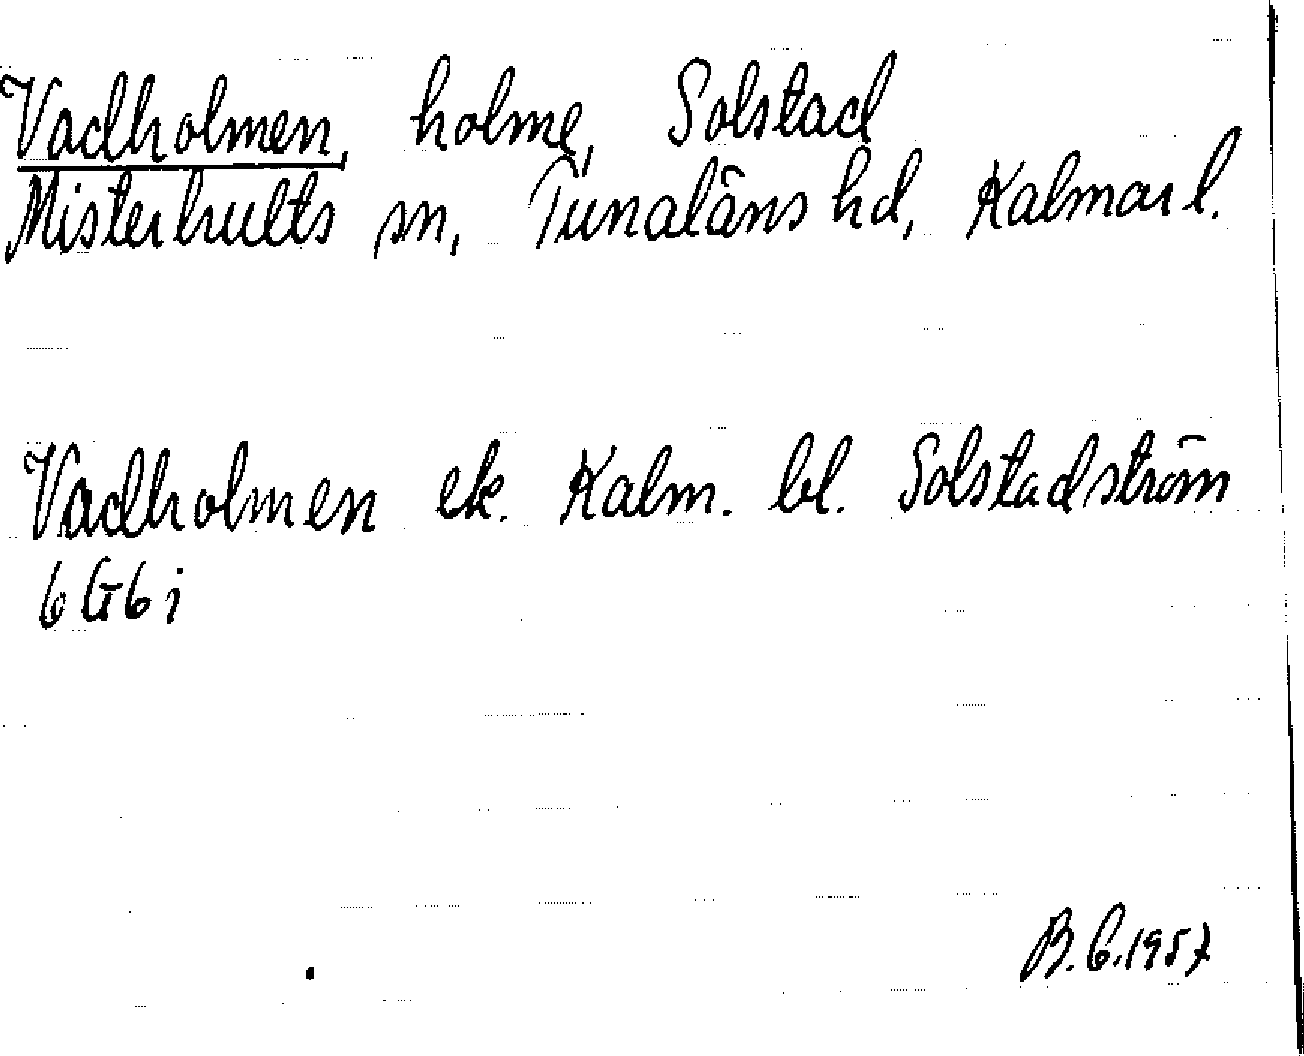 Vadholmen, holme, Solstad
Misterhults sn, Tunaläns hd, Kalmar l.
Vadholmen ek. Kalm. bl. Solstadström
6 G 6 i
B.C.1957